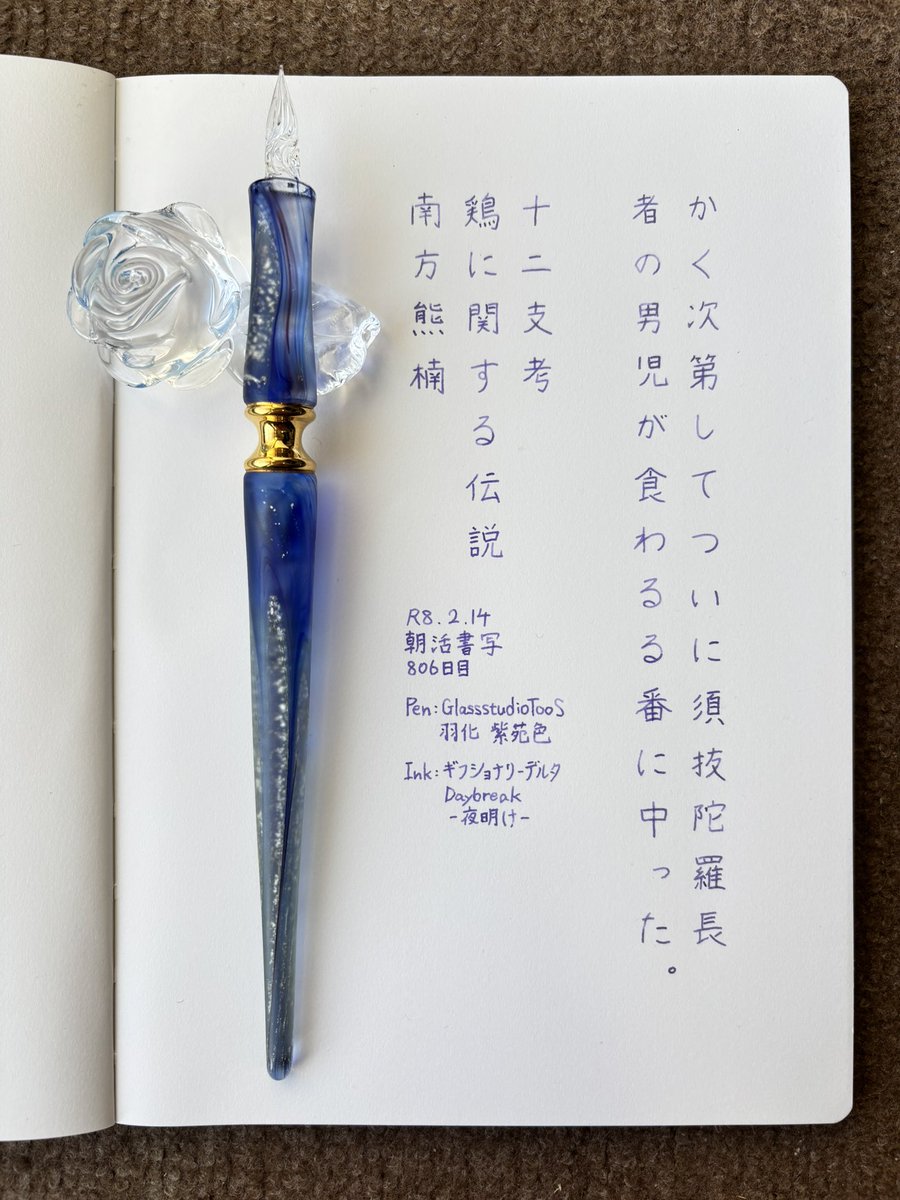 かく次第してついに須抜陀羅長
者の男児が食わるる番に中った。
十二支考
鶏に関する伝説
南方熊楠
R8.2.14
朝活書写
806日目
Pen:GlassstudioTooS
羽化 紫苑色
Ink:ギフショナリーデルタ
Daybreak
-夜明け-